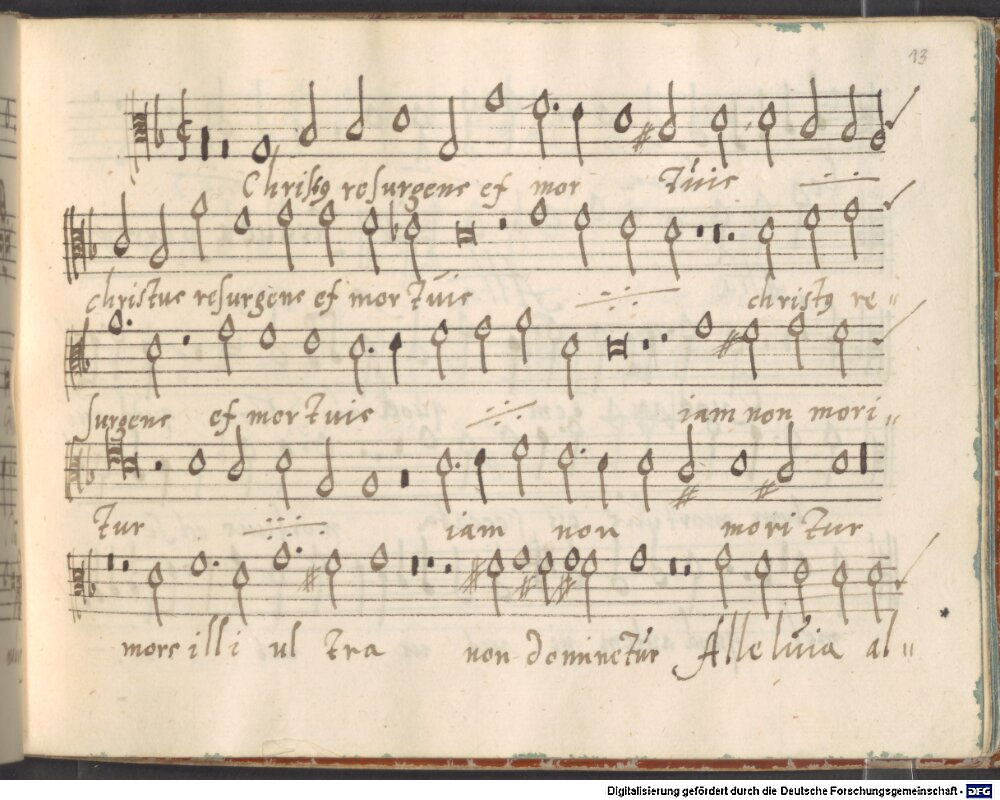 13
Christꝯ resurgens ex mor tuis
christus resurgens ex mor tuis christꝯ re=
surgens ex mor tuis iam non mori=
tur iam non mori tur
mors illi ul tra non dominetur Alleluia al=
Digitalisierung gefördert durch die Deutsche Forschungsgemeinschaft - DFG